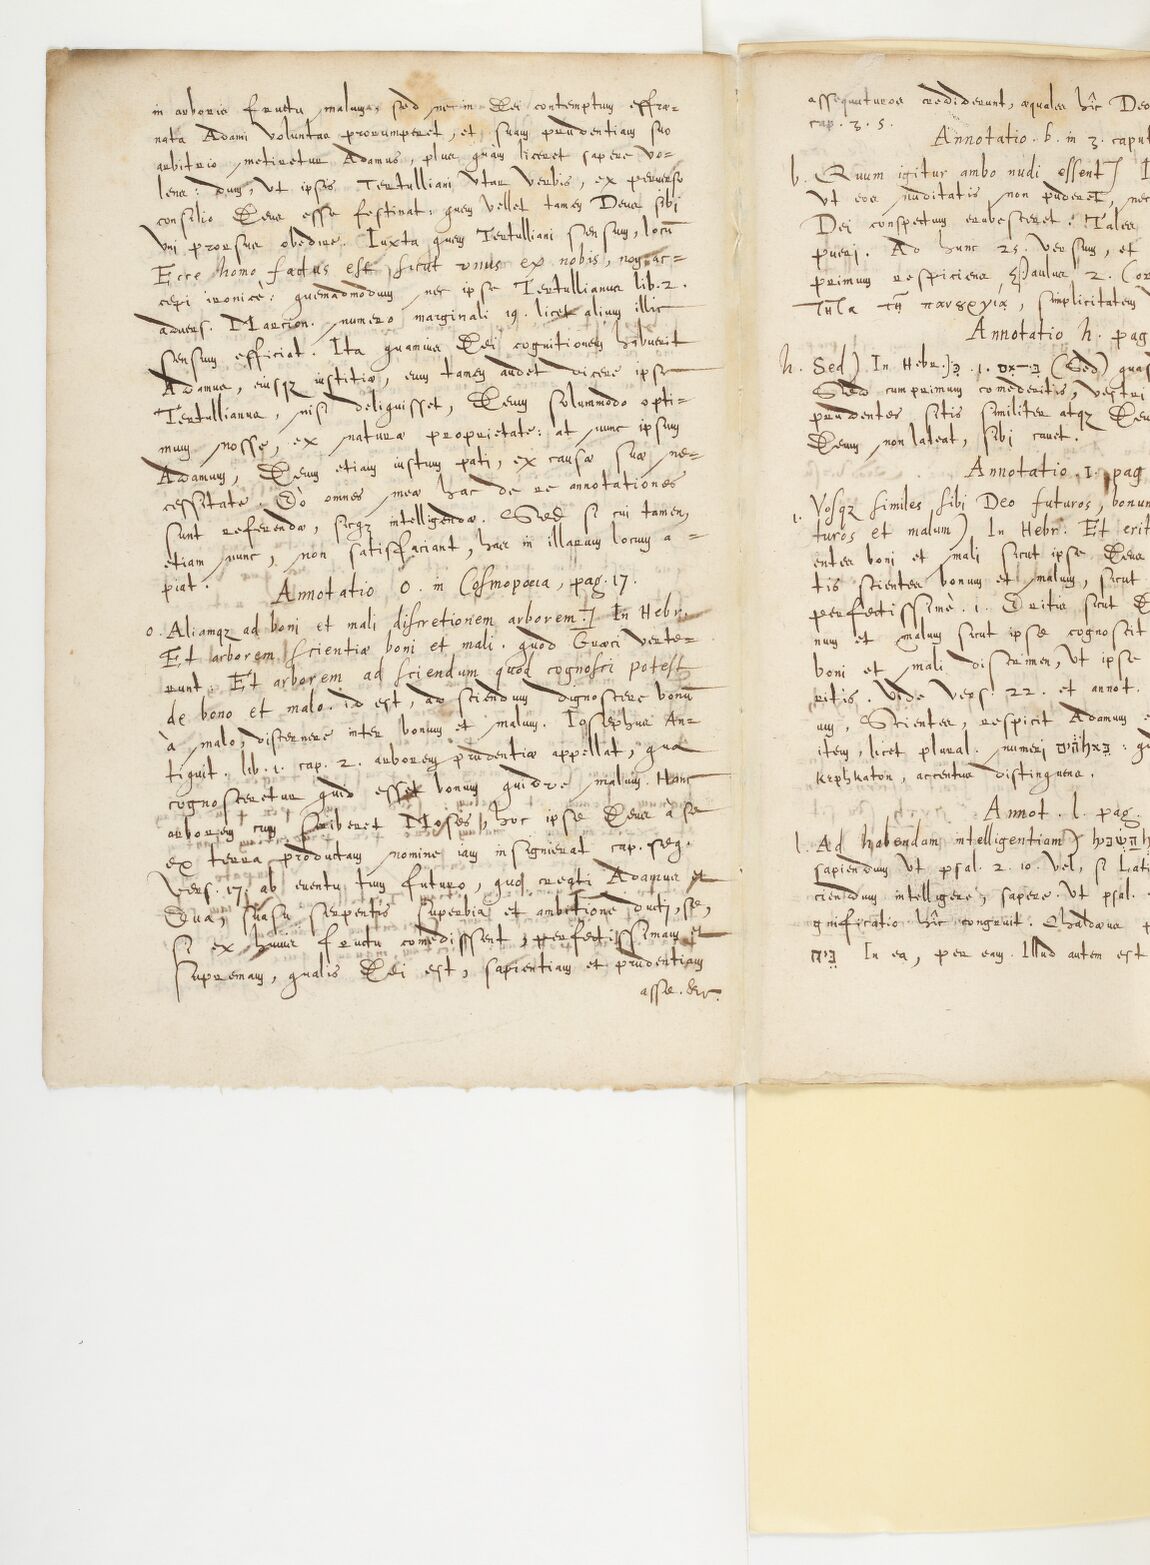 in arboris fructu malum, sed ne in Dei contemptum effræ-
nata Adami voluntas prorumperet, et suam prudentiam suo
arbitrio metiretur Adamus, plus quam liceret sapere vo-
lens: dum, ut ipsis Tertulliani utar verbis, ex perverso
consilio Deus esse festinat: quem vellet tamen Deus sibi
uni prorsus obedire. Iuxta quem Tertulliani sensum, locū
Ecce homo factus est sicut unus ex nobis, non ac-
cepi ironicè: quemadmodum nec ipse Tertullianus lib. 2.
advers. Marcion. numero marginali 19. licet alium illic
sensum efficiat. Ita quamvis Dei cognitionem habuerit
Adamus, eiusqz iustitiæ, eum tamen audet dicere ipse
Tertullianus, nisi deliquisset, Deum solummodo opti-
mum nosse, ex naturæ proprietate: at nunc ipsum
Adamum, Deum etiam iustum pati, ex causæ suæ ne-
cessitate. Eò omnes meæ hac de re annotationes
sunt referendæ, sicqz intelligendæ. Sed si cui tamen,
etiam nunc, non satisfaciant, hæc in illarum locum a-
piat.
Annotatio o. in Cosmopœia, pag. 17.
o. Aliamqz ad boni et mali discretionem arborem:] In Hebr.
Et arborem scientiæ boni et mali. quod Græci verte-
runt: Et arborem ad sciendum quod cognosci potest
de bono et malo. id est, ad sciendum dignoscere bonū
à malo, discernere inter bonum et malum. Iosephus An-
tiquit. lib. 1. cap. 2. arborem prudentiæ appellat, qua
cognosceretur quid esset bonum quidve malum. Hanc
arborem cum scriberet Moses, hoc ipse Deus à se
ex terra productam nomine iam insignierat cap. seq.
vers. 17. ab eventu tum futuro, quod creati Adamus et
Eva, suasu serpentis superbia et ambitione ducti, se,
si ex huius fructu comedissent, perfectissimam et
supremam, qualis Dei est, sapientiam et prudentiam
asse. &c.
assequuturos crediderunt, æquales hîc Deo
cap. 3. 5.
Annotatio. b. in 3. caput
b. Quum igitur ambo nudi essent]
ut eos nuditatis non puderet, nec
Dei conspectum erubesceret: Tales
pueri. Ad hunc 25. versum, et
primum respiciens Paulus 2. Cor
τητα τῇ πανουργίᾳ, simplicitatem
Annotatio h. pag
h. Sed). In Hebr. כִּי .1. כִּי־אִם (Sed) quasi
Sed cumprimum comederitis, vestri
prudentes sitis similiter atqz Deus
Deum non lateat, sibi cavet.
Annotatio. 1. pag
1. Vosqz similes sibi Deo futuros, bonum
turos et malum) In Hebr: Et erit
entes boni et mali sicut ipse Deus
tis scientes bonum et malum, sicut
perfectissimè. i. Eritis sicut D
num et malum sicut ipse cognoscit
boni et mali discrimen, ut ipse
ritis. Vide vers. 22. et annot.
um, Scientes, respicit Adamum e
item, licet plural. numeri
distinguens.
Annot. l. pag.
l. Ad habendam intelligentiam)
sapiendum ut psal. 2. 10. vel, si Lati
ciendum intelligere, sapere. ut psal.
gnificatio hîc congruit. Chaldæus
In ea, per eam. Illud autem est